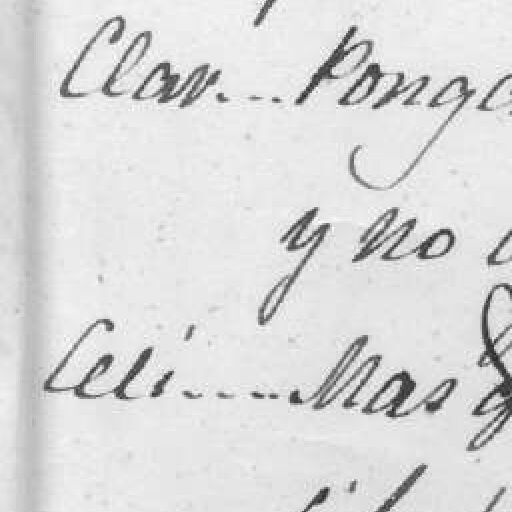 Clar.... Ponga
y no
Celi..... Mas